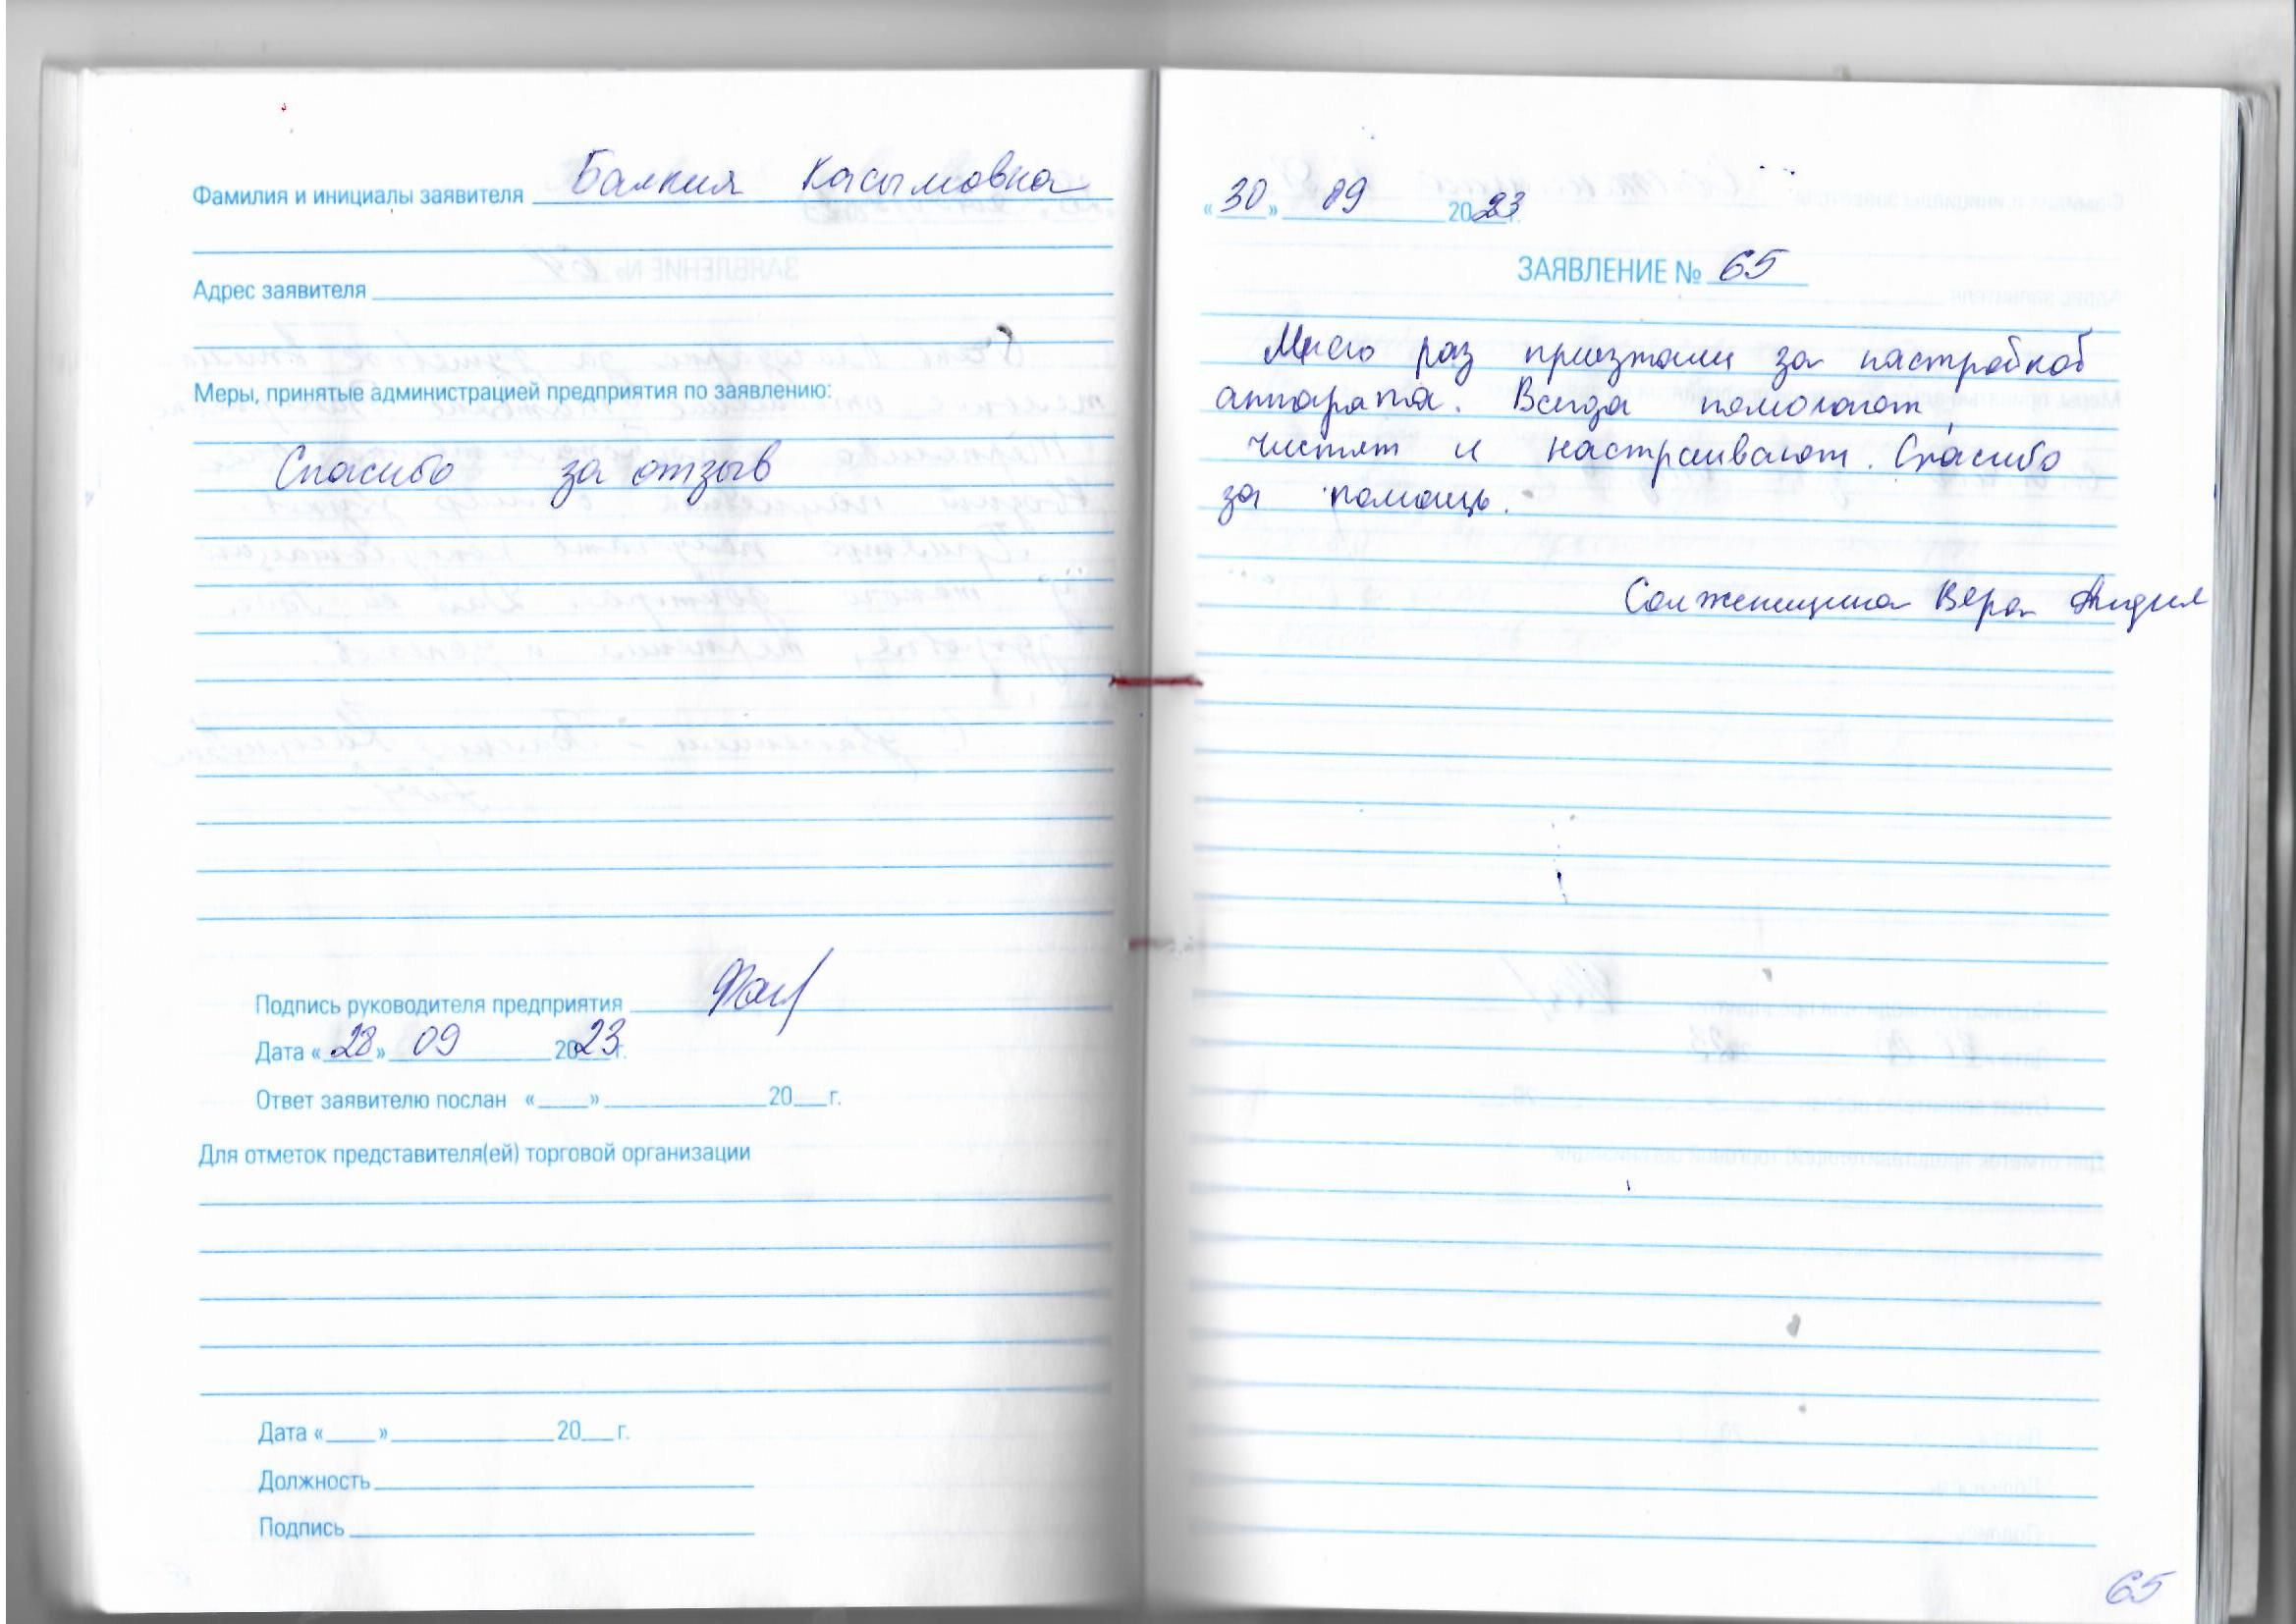 Фамилия и инициалы заявителя Балкия Касымовна
Адрес заявителя
Меры, принятые администрацией предприятия по заявлению:
Спасибо за отзыв
Подпись руководителя предприятия
Дата «28» 09 2023 г.
Ответ заявителю послан «___» ________ 20__ г.
Для отметок представителя(ей) торговой организации
Дата «___» ________ 20__ г.
Должность
Подпись
«30» 09 2023 г.
ЗАЯВЛЕНИЕ № 65
Много раз приезжали за настройкой
аппарата. Всегда помогают,
чистят и настраивают. Спасибо
за помощь.
Солженицина Вера
65